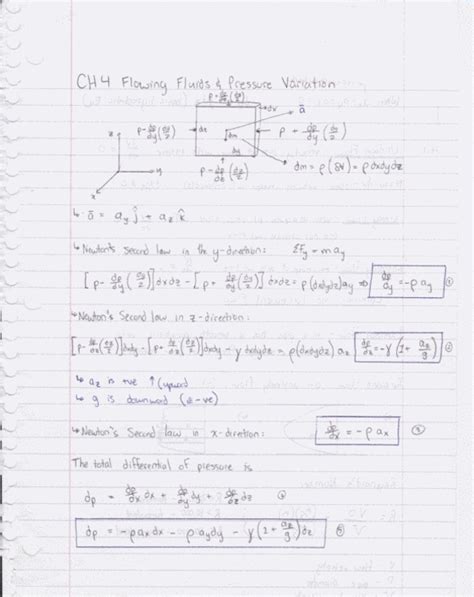 CH4 Flowing Fluids & Pressure Variation
P + ∂p/∂z (dz/2)
dx
ā
P - ∂p/∂y (dy/2) → dz dm ← P + ∂p/∂y (dy/2)
z
y
x
dy
P - ∂p/∂z (dz/2)
dm = ρ(δV) = ρ dxdydz
↳ ā = a_y ĵ + a_z k̂
↳ Newton's second law in the y-direction: ΣF_y = m a_y
[P - ∂p/∂y (dy/2)] dxdz - [P + ∂p/∂y (dy/2)] dxdz = ρ(dxdydz) a_y ⇒ ∂p/∂y = -ρ a_y ①
↳ Newton's Second law in z-direction:
[P - ∂p/∂z (dz/2)] dxdy - [P + ∂p/∂z (dz/2)] dxdy - γ dxdydz = ρ(dxdydz) a_z ∂p/∂z = -γ (1 + a_z/g) ②
↳ a_z is +ve ↑ (upward)
↳ g is downward
↳ Newton's Second law in x-diretion: ∂p/∂x = -ρ a_x ③
The total differential of pressure is
dp = ∂p/∂x dx + ∂p/∂y dy + ∂p/∂z dz ④
dp = -ρ a_x dx - ρ a_y dy - γ (1 + a_z/g) dz ⑤